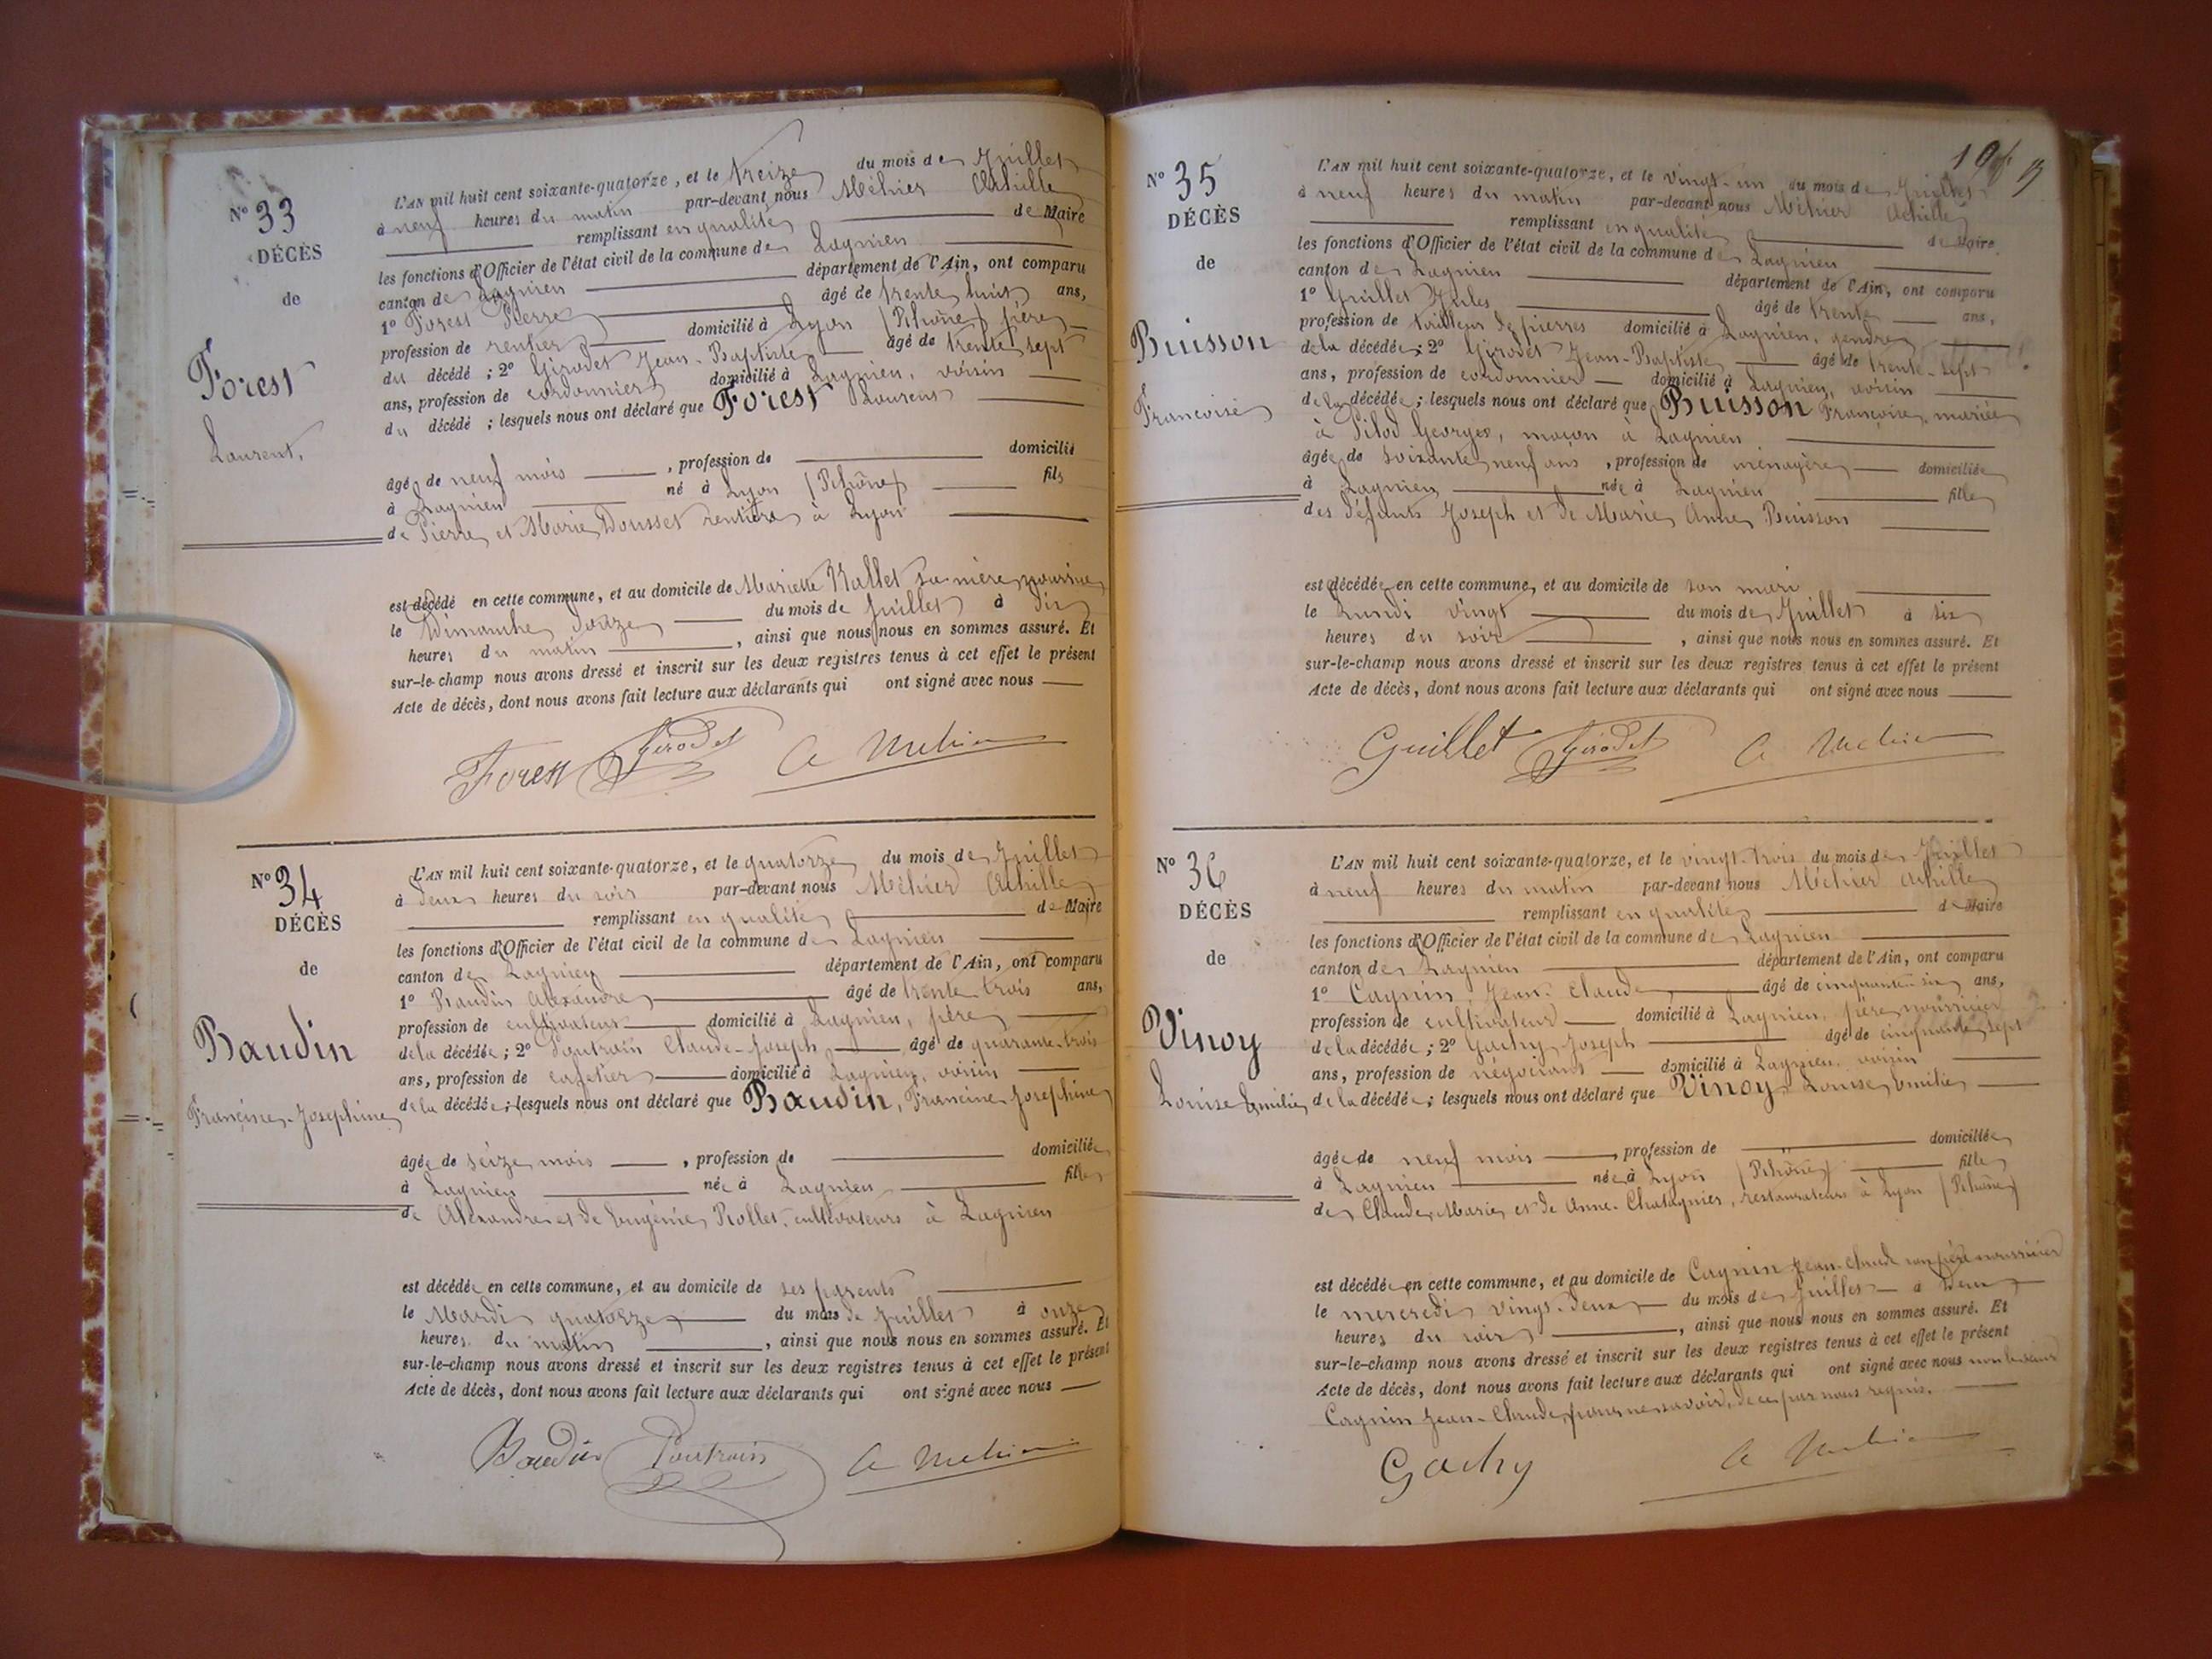 N° 33
DÉCÈS
de
Forest
Laurent,
L'AN mil huit cent soixante-quatorze, et le treize du mois de Juillet
à neuf heures du matin par-devant nous Méhier Achille
remplissant en qualité de Maire
les fonctions d'Officier de l'état civil de la commune de Lagnieu
canton de Lagnieu département de l'Ain, ont comparu
1° Forest Pierre âgé de trente huit ans,
profession de rentier domicilié à Lyon (Rhône) père
du décédé ; 2° Girodet Jean-Baptiste âgé de trente sept
ans, profession de cordonnier domicilié à Lagnieu, voisin
du décédé ; lesquels nous ont déclaré que Forest Laurent
âgé de neuf mois , profession de domicilié
à Lagnieu né à Lyon (Rhône) fils
de Pierre et Marie Dousset rentiers à Lyon
est décédé en cette commune, et au domicile de Mariette sa mère nourrice
le Dimanche douze du mois de juillet à dix
heures du matin , ainsi que nous nous en sommes assuré. Et
sur-le-champ nous avons dressé et inscrit sur les deux registres tenus à cet effet le présent
Acte de décès, dont nous avons fait lecture aux déclarants qui ont signé avec nous
Forest Girodet A Mehier
N° 34
DÉCÈS
de
Baudin
Francine-Josephine
L'AN mil huit cent soixante-quatorze, et le quatorze du mois de Juillet
à deux heures du soir par-devant nous Méhier Achille
remplissant en qualité de Maire
les fonctions d'Officier de l'état civil de la commune de Lagnieu
canton de Lagnieu département de l'Ain, ont comparu
1° Baudin Alexandre âgé de trente trois ans,
profession de cultivateur domicilié à Lagnieu, père
de la décédée ; 2° Poutrain Claude-Joseph âgé de quarante-trois
ans, profession de cafetier domicilié à Lagnieu, voisin
de la décédée ; lesquels nous ont déclaré que Baudin, Francine Josephine
âgée de seize mois , profession de domiciliée
à Lagnieu née à Lagnieu fille
de Alexandre et de Eugénie Rollet, cultivateurs à Lagnieu
est décédée en cette commune, et au domicile de ses parents
le Mardi quatorze du mois de Juillet à onze
heures du matin , ainsi que nous nous en sommes assuré. Et
sur-le-champ nous avons dressé et inscrit sur les deux registres tenus à cet effet le présent
Acte de décès, dont nous avons fait lecture aux déclarants qui ont signé avec nous
Baudin Poutrain A Mehier
19
N° 35
DÉCÈS
de
Buisson
Francoise
L'AN mil huit cent soixante-quatorze, et le vingt-un du mois de Juillet
à neuf heures du matin par-devant nous Méhier Achille
remplissant en qualité de Maire
les fonctions d'Officier de l'état civil de la commune de Lagnieu
canton de Lagnieu département de l'Ain, ont comparu
1° Guillet Jules âgé de trente ans,
profession de tailleur de pierres domicilié à Lagnieu, gendre
de la décédée ; 2° Girodet Jean-Baptiste âgé de trente-sept
ans, profession de cordonnier domicilié à Lagnieu, voisin
de la décédée ; lesquels nous ont déclaré que Buisson Françoise, mariée
à Pilod Georges, maçon à Lagnieu
âgée de soixante neuf ans , profession de ménagère domiciliée
à Lagnieu née à Lagnieu fille
des défunts Joseph et de Marie Anne Buisson
est décédée en cette commune, et au domicile de son mari
le Lundi vingt du mois de Juillet à six
heures du soir , ainsi que nous nous en sommes assuré. Et
sur-le-champ nous avons dressé et inscrit sur les deux registres tenus à cet effet le présent
Acte de décès, dont nous avons fait lecture aux déclarants qui ont signé avec nous
Guillet Girodet A Mehier
N° 36
DÉCÈS
de
Vinoy
Louise Emilie
L'AN mil huit cent soixante-quatorze, et le vingt-trois du mois de Juillet
à neuf heures du matin par-devant nous Méhier Achille
remplissant en qualité de Maire
les fonctions d'Officier de l'état civil de la commune de Lagnieu
canton de Lagnieu département de l'Ain, ont comparu
1° Cagnin Jean-Claude âgé de cinquante-six ans,
profession de cultivateur domicilié à Lagnieu, père nourricier
de la décédée ; 2° Gachy Joseph âgé de cinquante sept
ans, profession de négociant domicilié à Lagnieu, voisin
de la décédée ; lesquels nous ont déclaré que Vinoy Louise Emilie
âgée de neuf mois , profession de domiciliée
à Lagnieu née à Lyon (Rhône) fille
de Claude Marie et de Anne Chatagnier, restaurateurs à Lyon (Rhône)
est décédée en cette commune, et au domicile de Cagnin Jean-Claude son père nourricier
le mercredi vingt-deux du mois de Juillet à deux
heures du soir , ainsi que nous nous en sommes assuré. Et
sur-le-champ nous avons dressé et inscrit sur les deux registres tenus à cet effet le présent
Acte de décès, dont nous avons fait lecture aux déclarants qui ont signé avec nous non
Cagnin Jean-Claude pour ne savoir, de ce par nous requis.
Gachy A Mehier